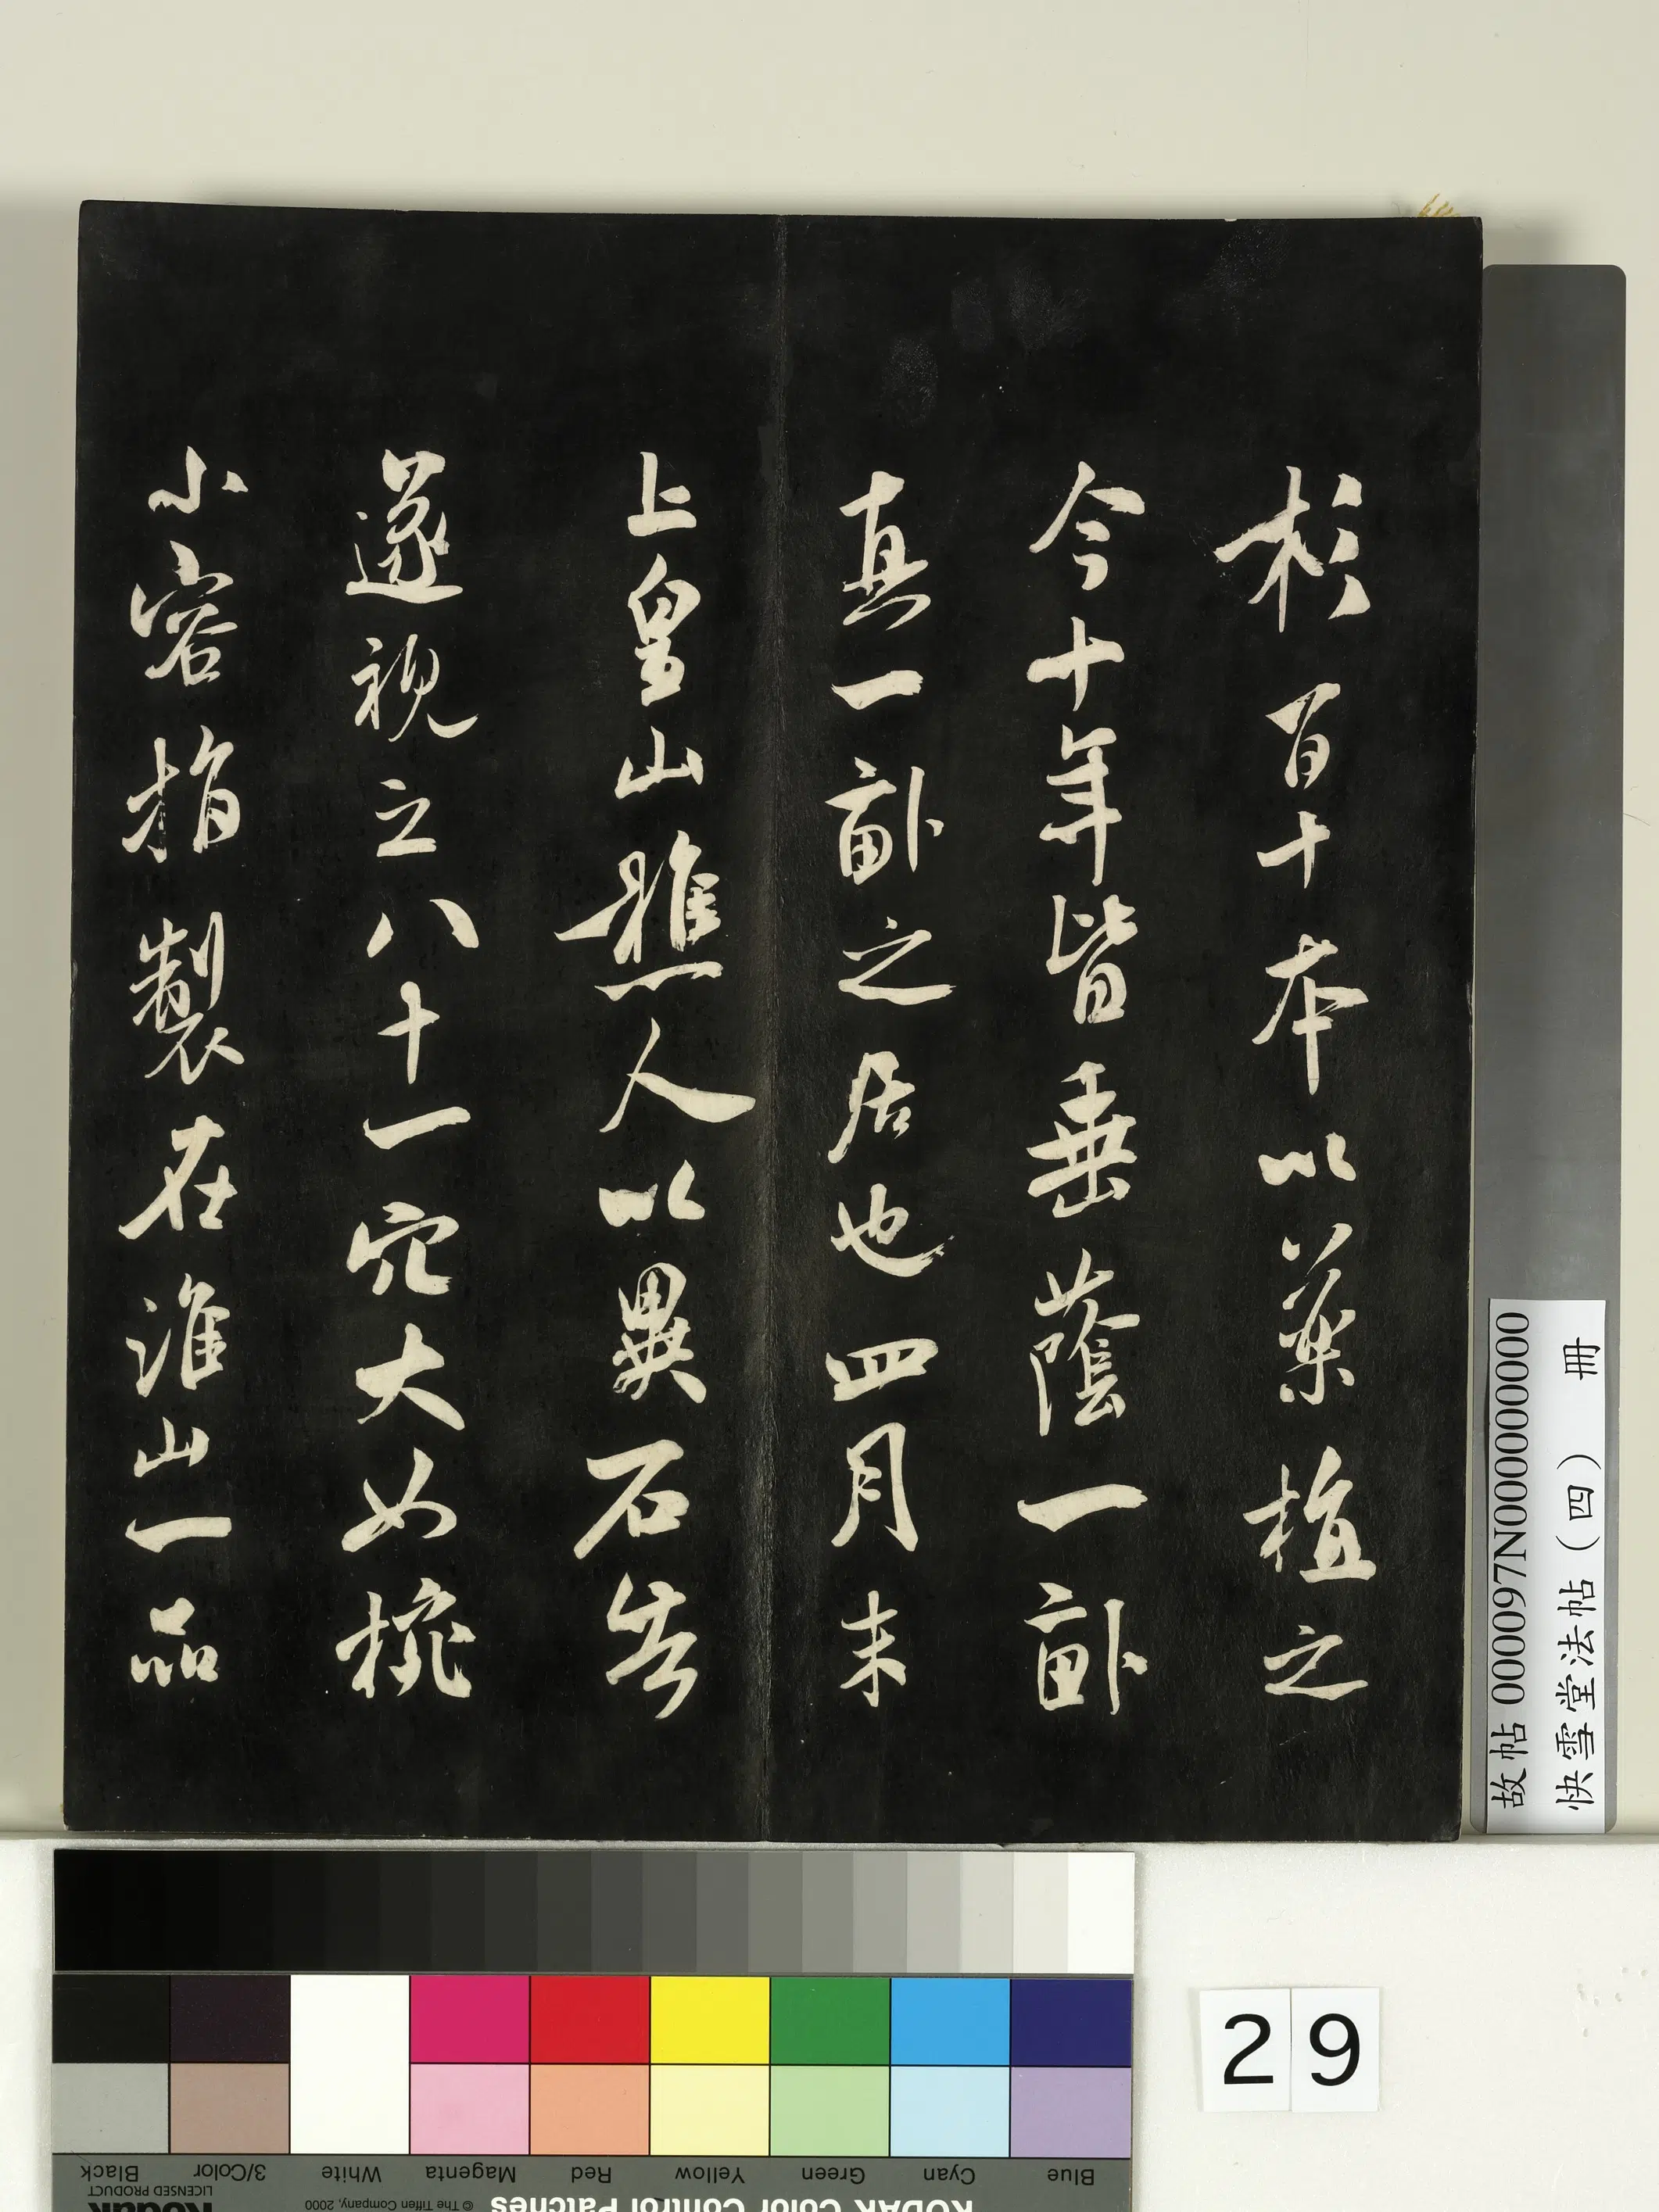 杉百十本以藥植之
今十年皆垂蔭一畝
真一畝之居也四月末
上皇山樵人以異石告
遂視之八十一穴大如椀
小容指製在淮山一品
故帖 000097N000000000
快雪堂法帖（四） 冊
29
Blue
Cyan
Green
Yellow
Red
Magenta
White
3/Color
Black
KODAK Color Control Patches
© The Tiffen Company, 2000
Kodak
LICENSED PRODUCT